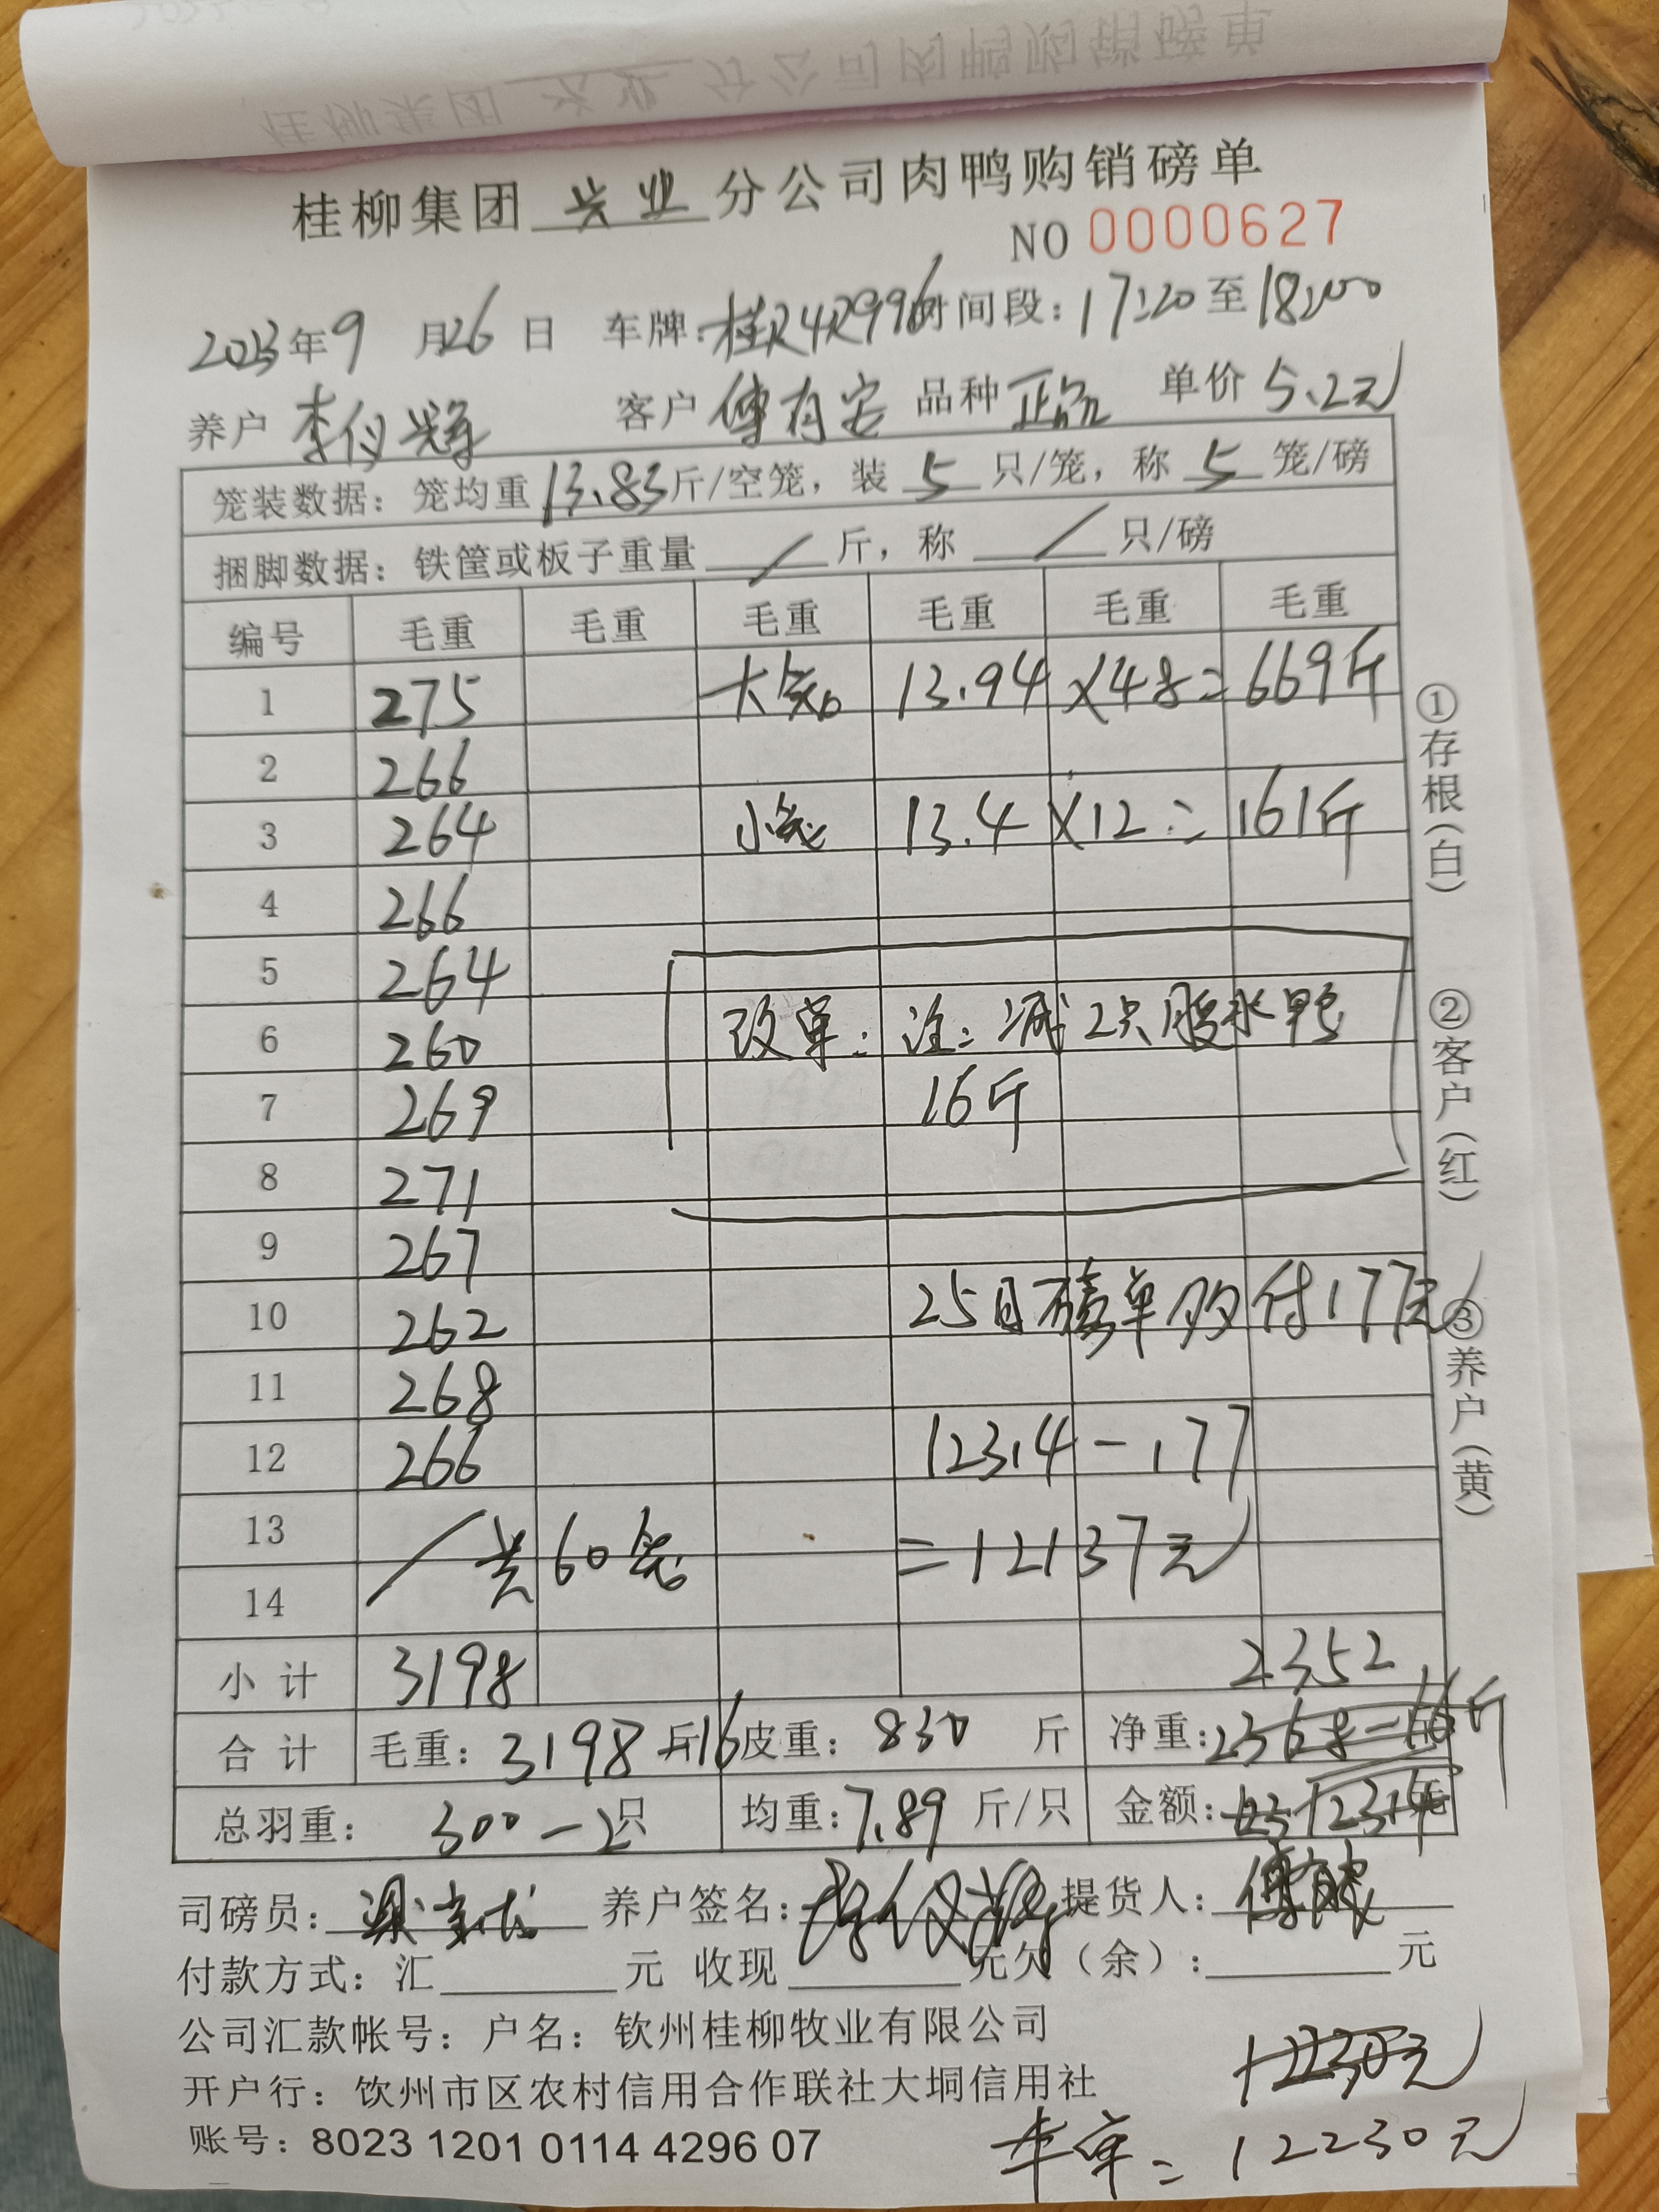 桂柳集团 兴业 分公司肉鸭购销磅单
NO 0000627
2023年9月26日 车牌: 时间段: 17:20 至 18:00
养户 李仪 客户 傅有安 品种 正品 单价 5.2元
笼装数据: 笼均重 13.83 斤/空笼, 装 5 只/笼, 称 5 笼/磅
捆脚数据: 铁筐或板子重量 / 斤, 称 / 只/磅
编号 毛重 毛重 毛重 毛重 毛重 毛重
1 275 大笼 13.94 ×48= 669斤
2 266
3 264 小笼 13.4 ×12= 161斤
4 266
5 264
6 260 改单: 注: 减2只腹水鸭
7 269 16斤
8 271
9 267
10 262 25日磅单 付177元
11 268
12 266 12314-177
13 / 共60笼 =12137元
14
小计 3198 2352
合计 毛重: 3198斤-16 皮重: 830 斤 净重: 2368-16斤
总羽重: 300-2只 均重: 7.89 斤/只 金额: 元
司磅员: 养户签名: 提货人:
付款方式: 汇 元 收现 元欠(余): 元
公司汇款帐号: 户名: 钦州桂柳牧业有限公司
开户行: 饮州市区农村信用合作联社大垌信用社
12230元
账号: 8023 1201 0114 4296 07
本单=12230元
①存根(白)
②客户(红)
③养户(黄)